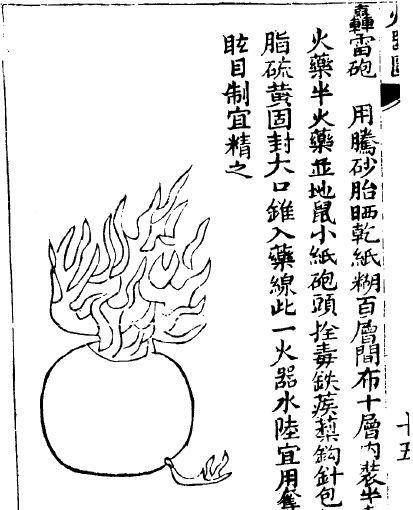 火器圖
十五
轟雷砲 用騰砂胎晒乾紙糊百層間布十層內裝半
火藥半火藥並地鼠小紙砲頭拴毒鉄蒺藜鈎針包
脂硫黄固封大口錐入藥線此一火器水陸宜用奪
眩目制宜精之